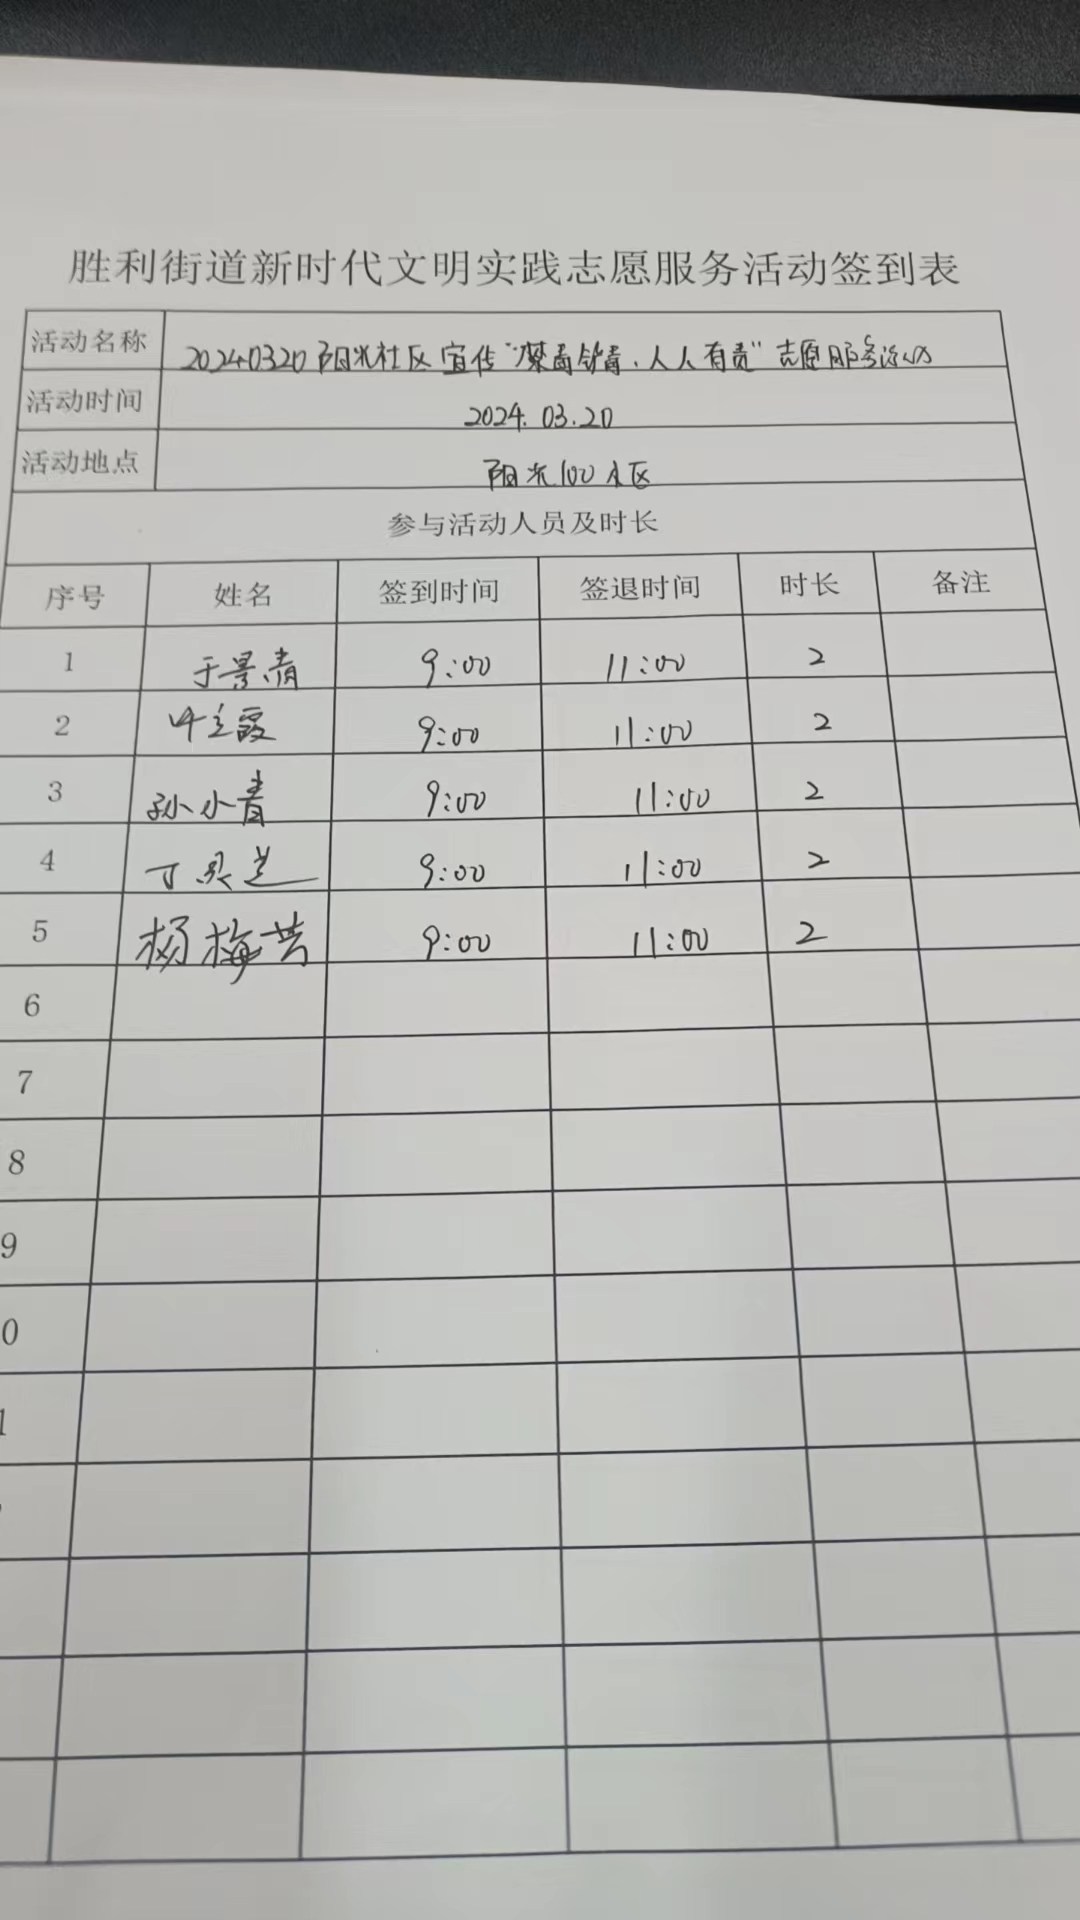 胜利街道新时代文明实践志愿服务活动签到表
活动名称 20240320阳光社区宣传“禁毒铲毒，人人有责”志愿服务活动
活动时间 2024.03.20
活动地点 阳光100小区
参与活动人员及时长
序号 姓名 签到时间 签退时间 时长 备注
1 于景青 9:00 11:00 2
2 叶立霞 9:00 11:00 2
3 孙小青 9:00 11:00 2
4 丁 9:00 11:00 2
5 杨梅芸 9:00 11:00 2
6
7
8
9
0
1